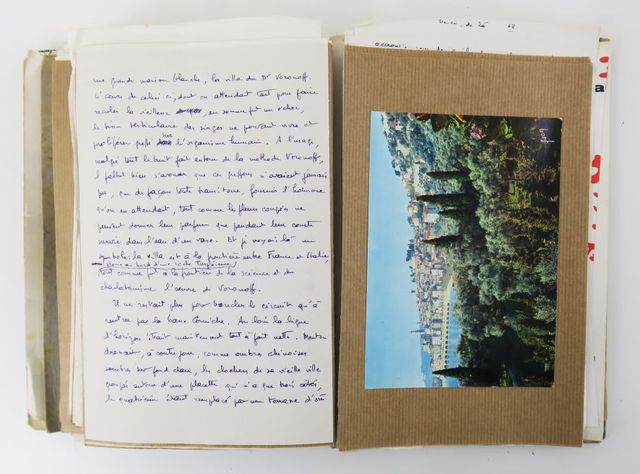 une grande maison blanche, la villa du Dr Voronoff.
L'œuvre de celui-ci, dont on attendait tant pour faire
reculer la vieillesse, en somme fut un échec,
le tissu testiculaire des singes ne pouvant vivre et
proliférer greffé sur l'organisme humain. A l'usage,
malgré tout le bruit fait autour de la méthode Voronoff,
il fallut bien s'avouer que ces greffons n'avaient jamais
pu, que de façon toute transitoire, fournir l'hormone
qu'on en attendait, tout comme les fleurs coupées ne
peuvent donner leur parfum que pendant leur courte
survie dans l'eau d'un vase. Et je voyais là un
symbole: la villa est à la frontière entre France et Italie
tout comme fut à la frontière de la science et du
charlatanisme l'œuvre de Voronoff.
Il ne restait plus pour boucler le circuit qu'à
rentrer par la basse Corniche. Au loin la ligne
d'horizon était maintenant tout à fait nette. Menton
dressait, à contre jour, comme ombres chinoises
sombres sur fond clair, les clochers de sa vieille ville
groupés autour d'une placette qui n'a que trois côtés,
le quatrième étant remplacé par une terrasse d'où